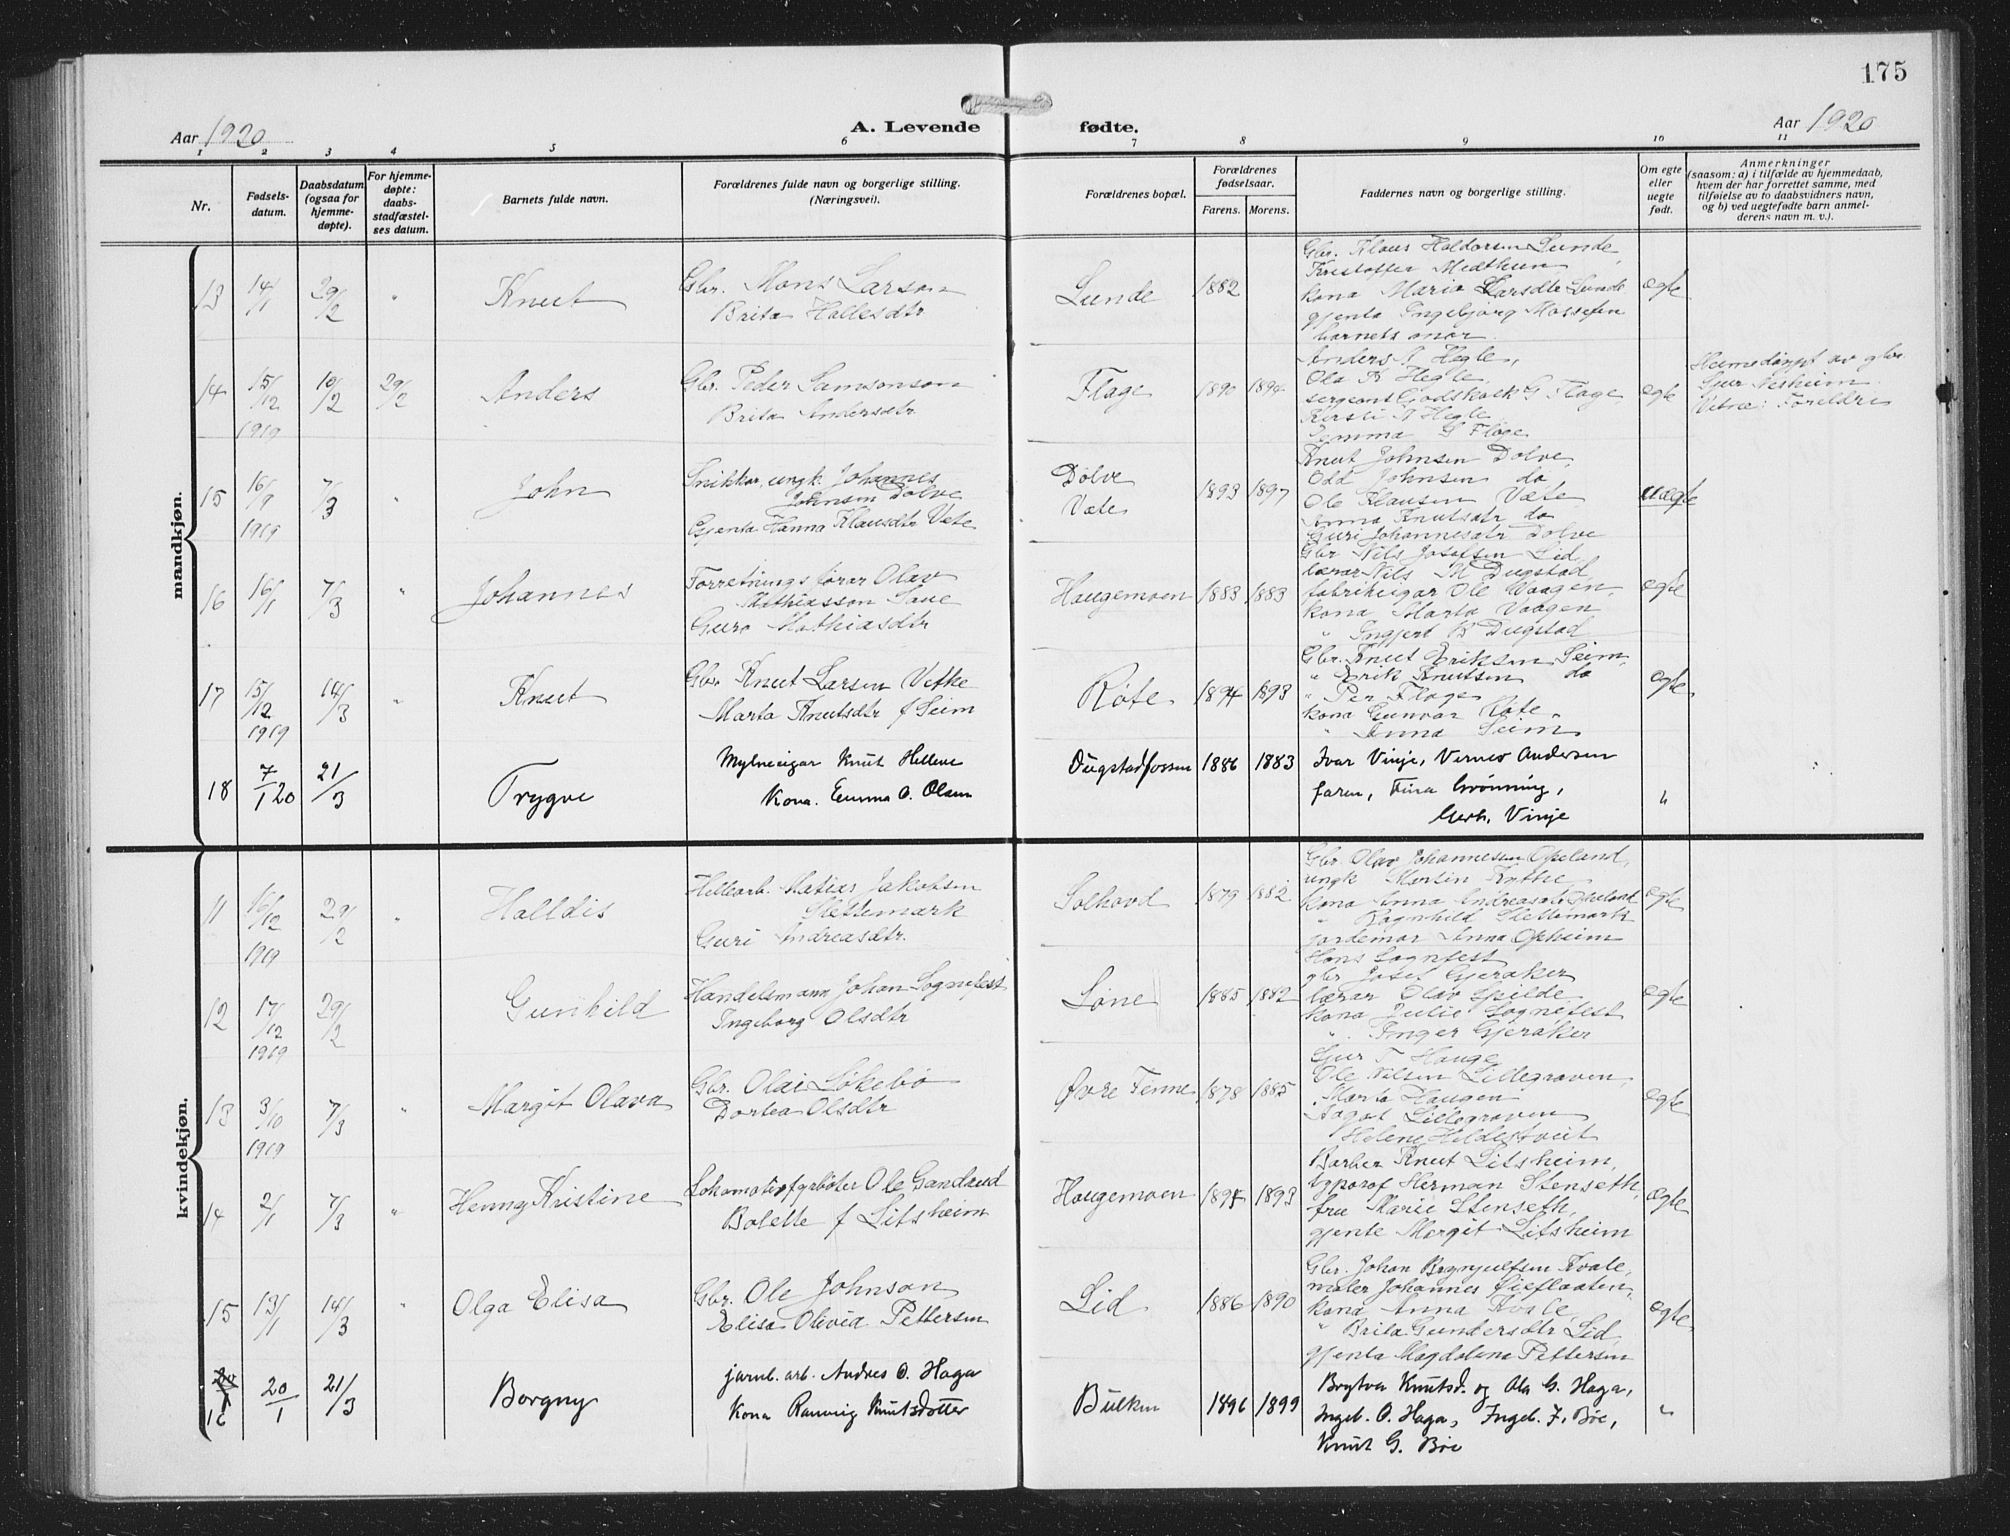 175
Aar 1920
A. Levende fødte.
Aar 1920
1 2 3 4 5 6 7 8 9 10 11
Nr.
Fødsels-
datum.
Daabsdatum
(ogsaa for
hjemme-
døpte).
For hjemme-
døpte:
daabs-
stadfæstel-
ses datum.
Barnets fulde navn.
Forældrenes fulde navn og borgerlige stilling.
(Næringsvei).
Forældrenes bopæl.
Forældrenes
fødselsaar.
Farens. Morens.
Faddernes navn og borgerlige stilling.
Om egte
eller
uegte
født.
Anmerkninger
(saasom: a) i tilfælde av hjemmedaab,
hvem der har forrettet samme, med
tilføielse av to daabsvidners navn,
og b) ved uegtefødte barn anmel-
derens navn m. v.).
mandkjøn.
13 14/1 29/2 " Knut
Gbr. Mons Larson
Brita Hallesdtr
Lunde 1882
Gbr. Klaus Haldorsen Lunde,
Kristoffer Medthun
kona Maria Larsdtr Lunde
gjenta Ingebjørg Mossefin
barnets mor.
egte
14 15/12 1919 10/2 29/2 Anders
Gbr. Peder Samsonson
Brita Andersdtr
Flage 1890 1894
Anders A Hegle,
Ola K Hegle,
sergeant Godskalk G Flage,
Kirsti A Hegle
Jemima S Flage
egte
Heimedøypt av gbr.
Sjur Nesheim.
Vitne: Foreldre
15 16/9 1919 7/3 " John
Snikkar, ungk. Johannes
Johnsen Dolve
Gjenta Hanna Klausdtr Vete
Dolve
Vete
1893 1897
Knut Johnsen Dolve,
Odd Johnsen do
Ole Klausen Væte
Anna Knutsdtr do
Guri Johannesdtr Dolve
uegte
16 16/1 7/3 " Johannes
Forretningsførar Olav
Mathiasson Saue
Guro Mathiasdtr
Haugemoen 1883 1883
Gbr Nils Josefsen Lid
lærar Nils M Dugstad,
fabrikeigar Ole Vaagen,
kona Marta Vaagen
" Ingjerd B Dugstad
egte
17 15/12 1919 14/3 " Knut
Gbr. Knut Larsen Vethe
Marta Knutsdtr f Seim
Rote 1894 1893
Gbr. Knut Eriksen Seim,
" Erik Knutsen do
" Per Flage
kona Gunvor Rote,
" Anna Seim
egte
18 7/1 20 21/3 Trygve
Mylneeigar Knut Hellene
Kona. Emma O. Olsen
Dugstadfossen 1886 1883
Ivar Vinje, Verner Andersen
faren, Tina Grönning,
Gerh. Vinje
"
kvindekjøn.
11 16/12 1919 29/2 " Halldis
Hellearb. Matias Jakobsen
Slettemark
Guri Andreasdtr.
Solhovd 1879 1882
Gbr. Olav Johannesen Opeland,
ungk Martin Kythe
kona Anna Andreasdtr Opeland
" Ragnhild Slettemark
jordemor Anna Opheim
egte
12 17/12 1919 29/2 Gunhild
Handelsmann Johan Sognefest
Ingeborg Olsdtr
Løne 1885 1882
Hans Sognfest
gbr Josef Gjeraker
lærar Olav Spilde
kona Julie Sognefest
" Inger Gjeraker
egte
13 3/10 1919 7/3 " Margit Olava
Gbr. Olai Løkebø
Dortea Olsdtr
Øvre Tenne 1878 1885
Sjur T Hauge
Ole Nilsen Lillegraven,
Marta Haugen
Aagot Lillegraven
Helene Hildestveit
egte
14 2/1 7/3 " Henny Kristine
Lokomotivfyrbøter Ole Gandrud
Bolette f Litsheim
Haugemoen 1894 1893
Barber Knut Litsheim,
typograf Herman Stenseth,
fru Marie Stenseth,
gjente Margit Litsheim
egte
15 13/1 14/3 " Olga Elisa
Gbr. Ole Johnson
Elisa Olivia Pettersen
Lid 1886 1890
Gbr. Johan Brynjulfsen Kvale,
maler Johannes Gieflaaten,
kona Anna Kvale,
" Brita Gundersdtr Lid,
gjenta Magdalena Pettersen
egte.
16 20/1 21/3 Borgny
jarnb. arb. Andres O. Haga
Kona Ranveig Knutsdotter
Bulken 1896 1899
Brytva Knutsd. og Ola G. Haga,
Ingeb. O. Haga, Ingeb. J. Böe,
Knut G. Böe
"